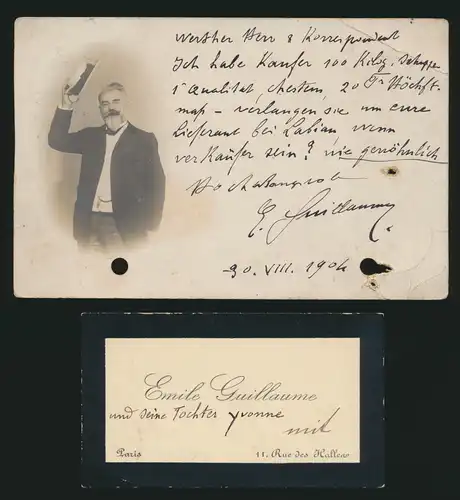 Werther Herr & Korrespondent
Ich habe Kaufer 100 Kilog. Schuppe
1ª Qualität, chestem, 20 Fr Höchst-
maß – verlangen sie um eure
Lieferant bei Labian, wenn
verkäufer sein? wie gewöhnlich
E. Guillaume
30. VIII. 1904
Emile Guillaume
und seine Tochter Yvonne
mit
Paris 11, Rue des Halles